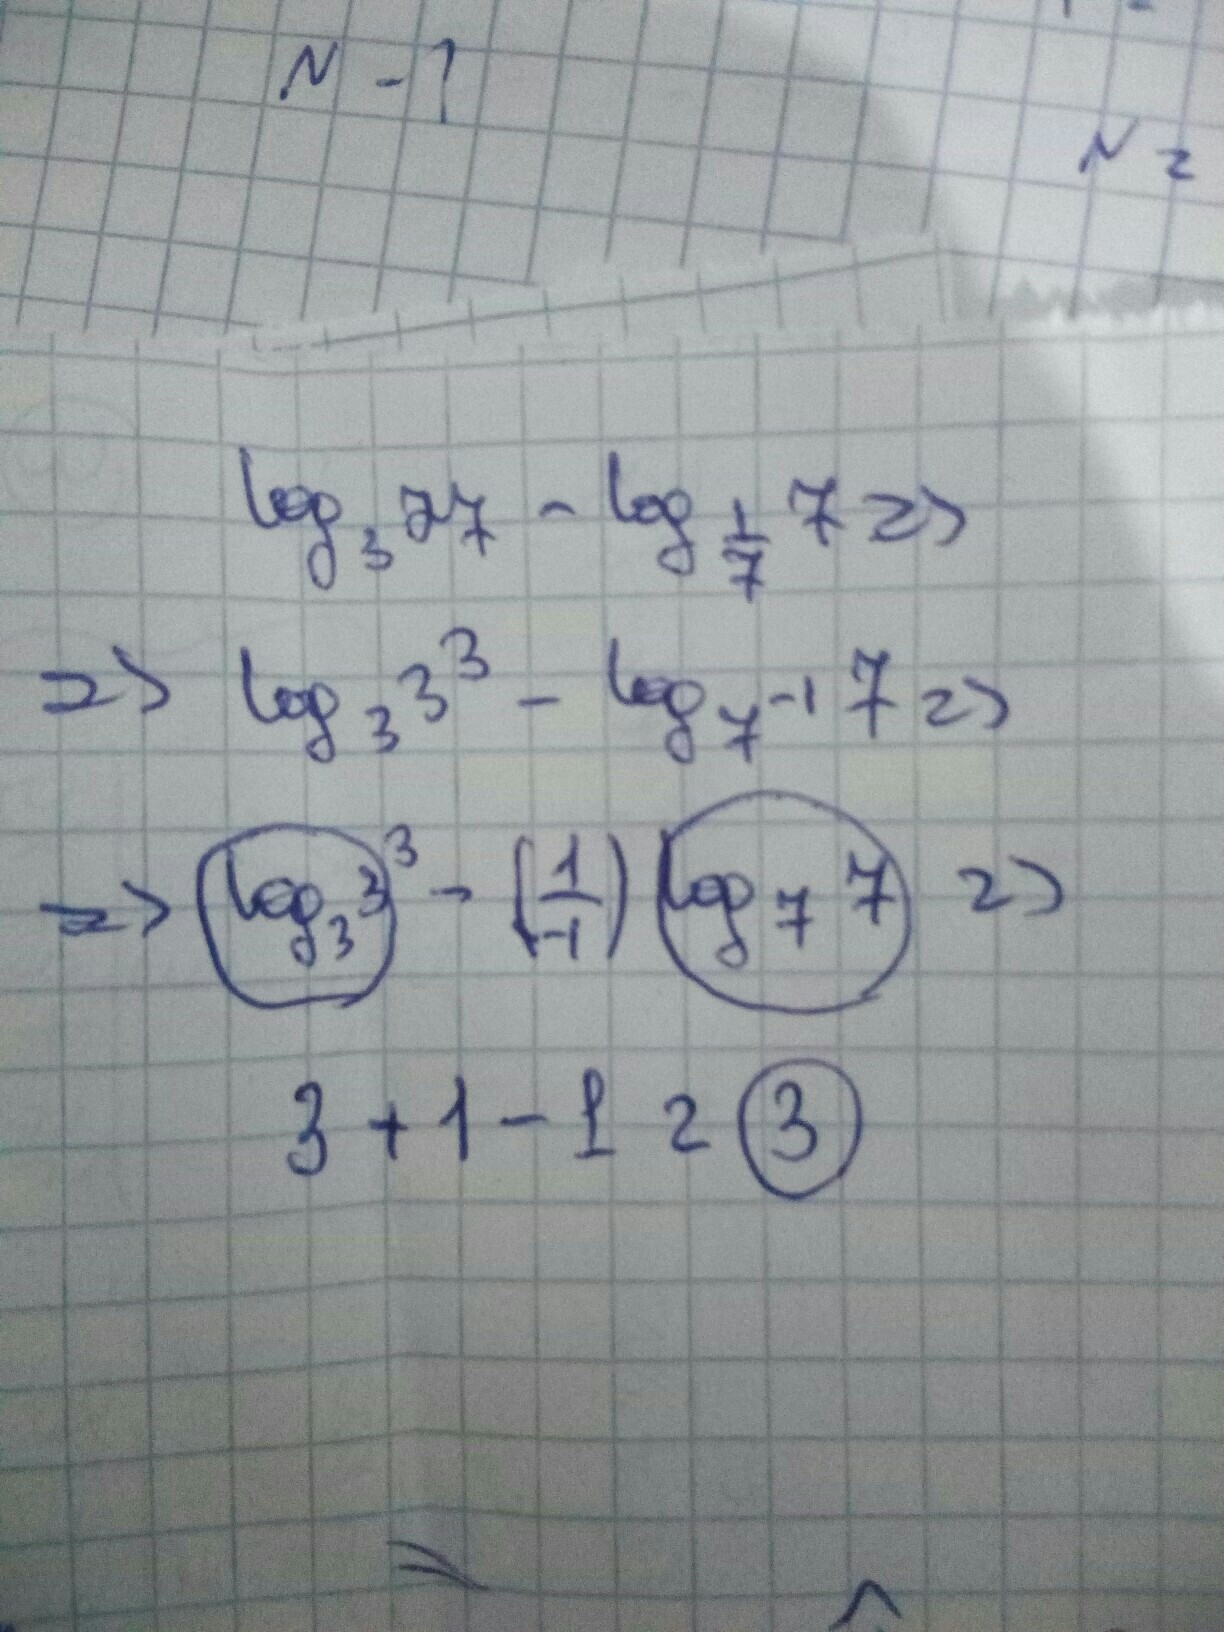 N - ?
N =
log₃ 27 - log_{1/7} 7 =>
=> log₃ 3³ - log_{7⁻¹} 7 =>
=> log₃ 3³ - (1/-1) log₇ 7 =>
3 + 1 - 1 = 3